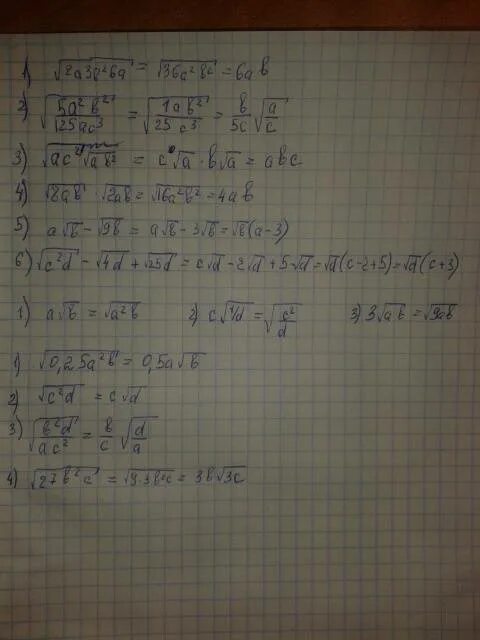 1) √(2a3b²6a) = √(36a²b²) = 6ab
2) √(5a²b²/125ac³) = √(1ab²/25c³) = b/5c √(a/c)
3) √(ac²) √(ab²) = c√a · b√a = abc
4) √(8ab) · √(2ab) = √(16a²b²) = 4ab
5) a√b - √(9b) = a√b - 3√b = √b(a-3)
6) √(c²d) - √(4d) + √(25d) = c√d - 2√d + 5√d = √d(c-2+5) = √d(c+3)
1) a√b = √(a²b) 2) c√(1/d) = √(c²/d) 3) 3√(ab) = √(9ab)
1) √(0,25a²b) = 0,5a√b
2) √(c²d) = c√d
3) √(b²d/ac²) = b/c √(d/a)
4) √(27b²c) = √(9·3b²c) = 3b√(3c)